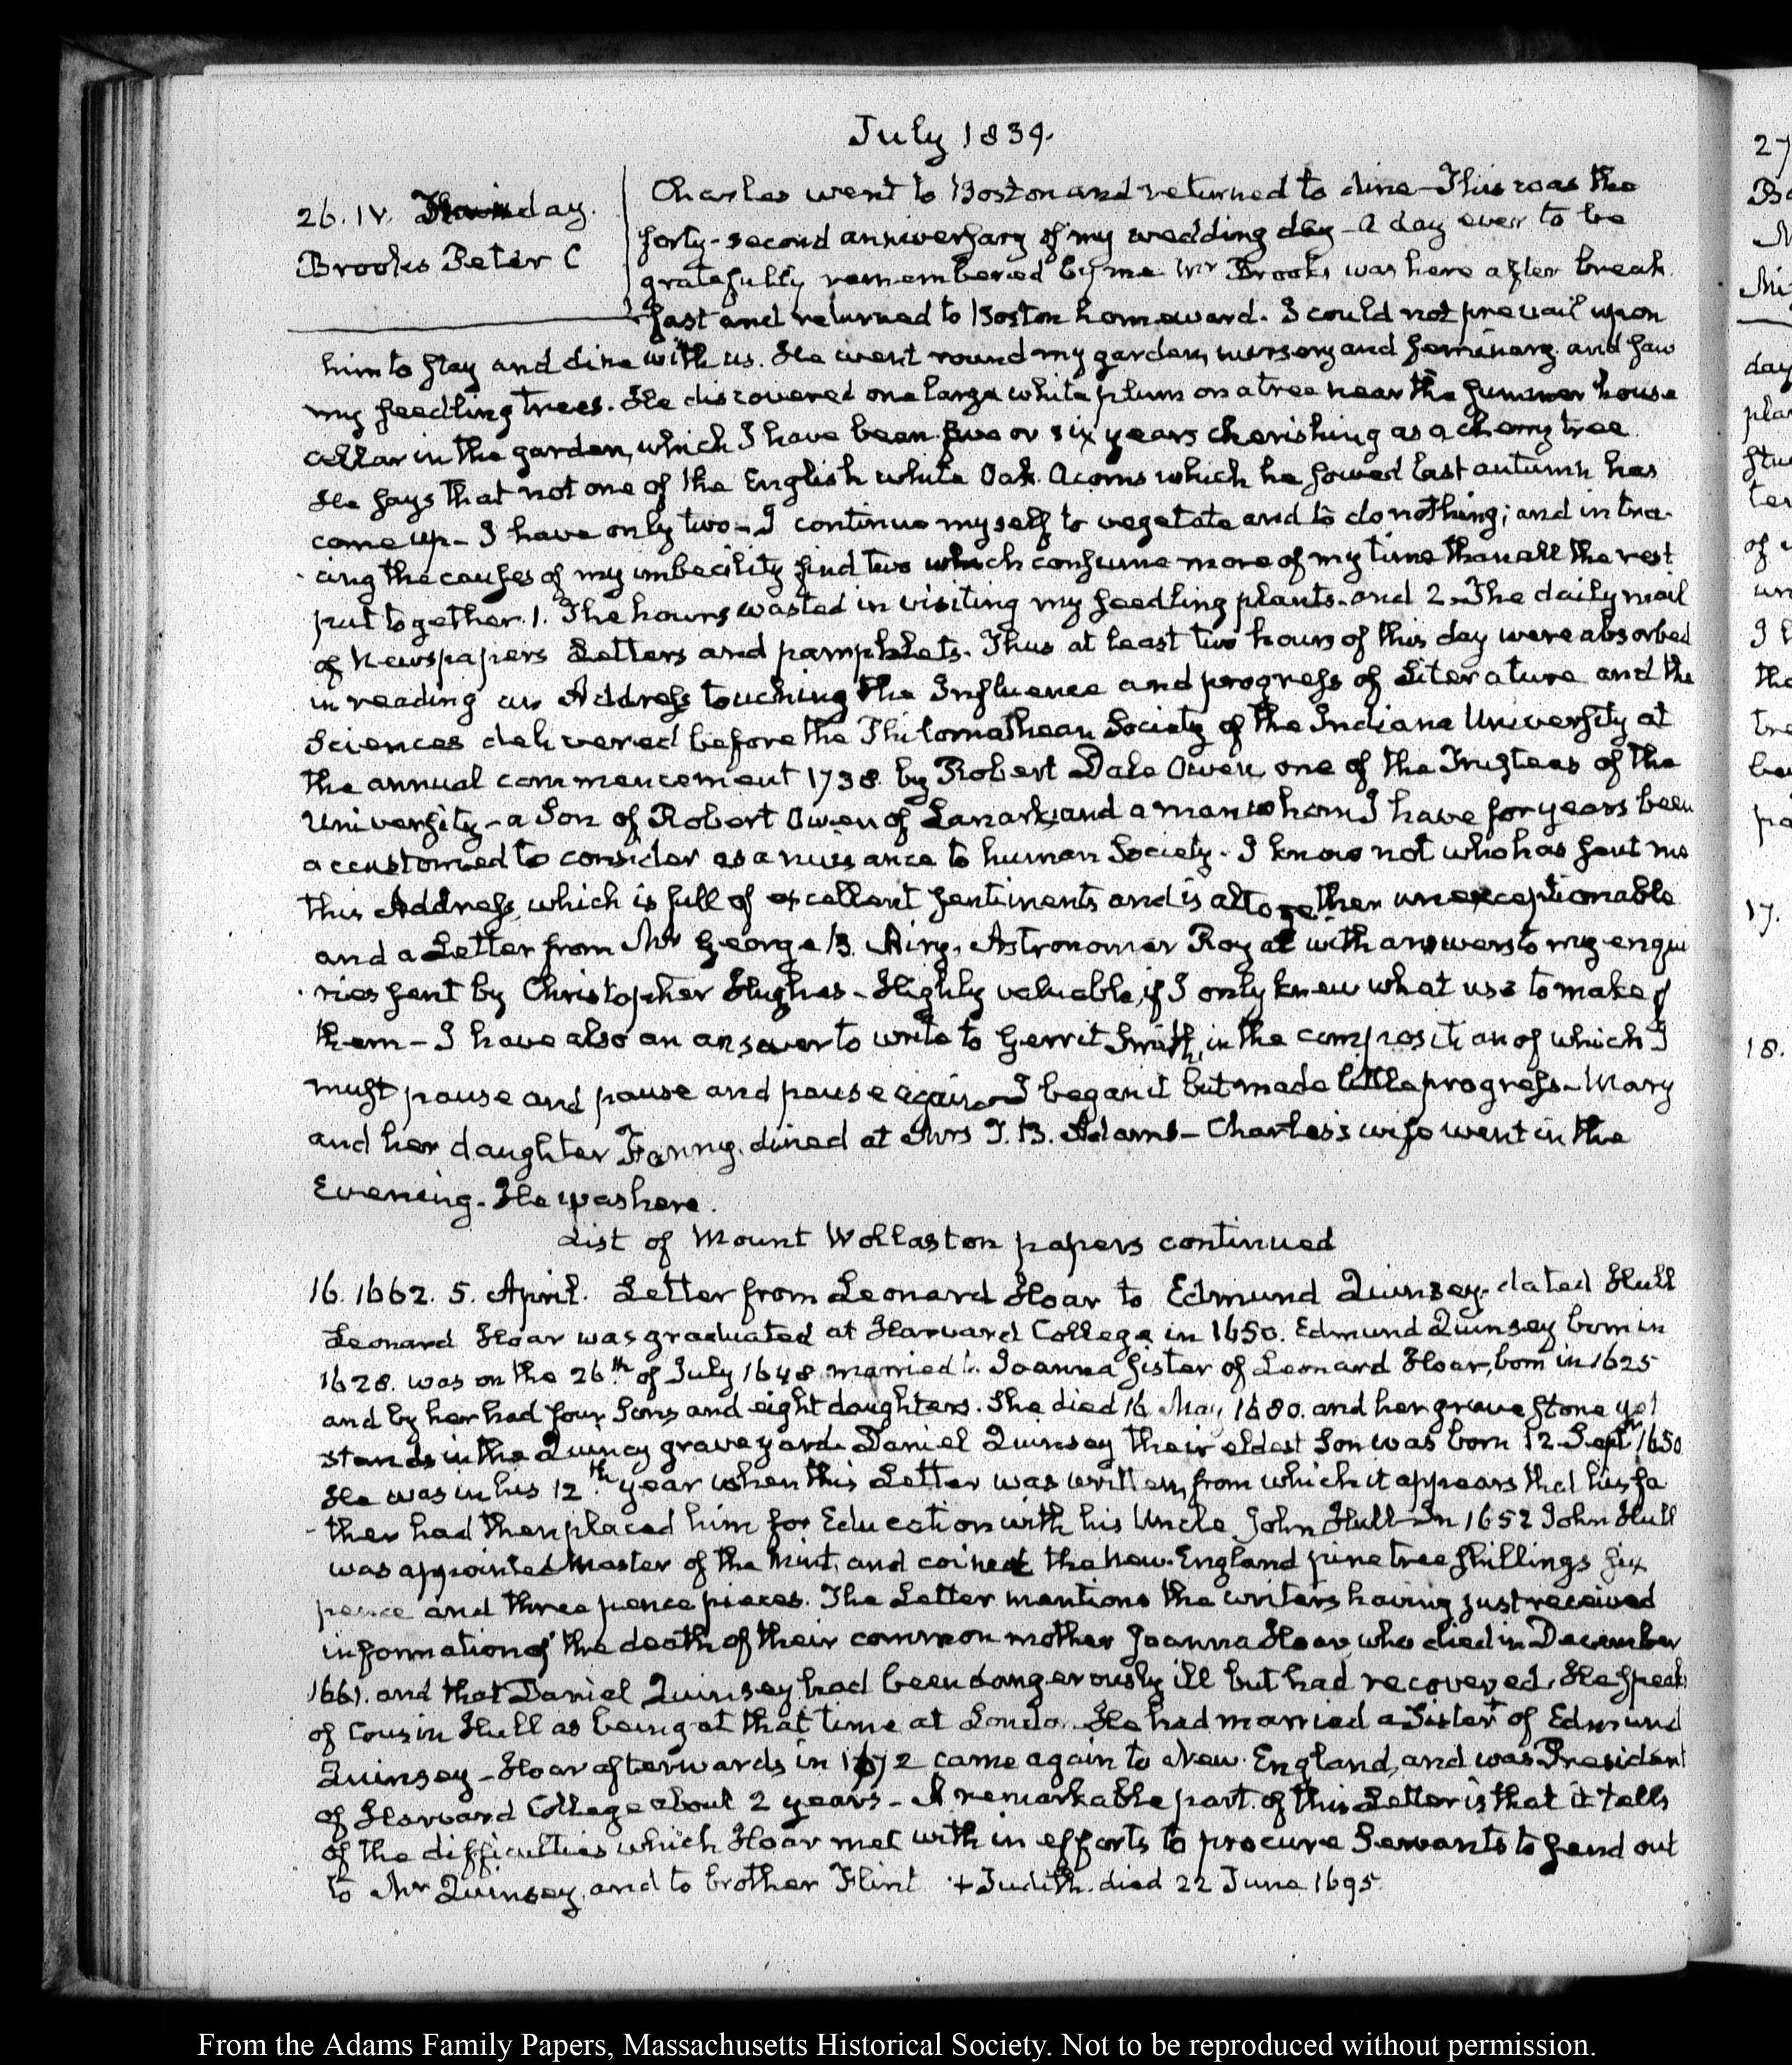 July 1839.
26. IV. day.
Brooks Peter C
Charles went to Boston and returned to dine – This was the
forty-second anniversary of my wedding day – a day ever to be
gratefully remembered by me Mr Brooks was here after break
fast and returned to Boston homeward. I could not prevail upon
him to stay and dine with us. He went round my garden, nursery and seminary and saw
my seedling trees. He discovered one large white plum on a tree near the summer house
cellar in the garden, which I have been five or six years cherishing as a cherry tree
He says that not one of the English white Oak Acorns which he sowed last autumn has
come up – I have only two – I continue myself to vegetate and to do nothing; and in tra-
-cing the causes of my imbecility find two which consume more of my time than all the rest
put together. 1. The hours wasted in visiting my seedling plants. and 2. The daily mail
of Newspapers Letters and pamphlets. Thus at least two hours of this day were absorbed
in reading an Address touching the Influence and progress of Literature and the
Sciences delivered before the Philomathean Society of the Indiana University at
the annual commencement 1738. by Robert Dale Owen, one of the Trustees of the
University – a Son of Robert Owen of Lanark, and a man whom I have for years been
accustomed to consider as a nuisance to human Society. I know not who has sent me
this Address, which is full of excellent sentiments and is altogether unexceptionable
and a Letter from Mr George B. Airy, Astronomer Royal with answers to my enqui
-ries sent by Christopher Hughes – Highly valuable, if I only knew what use to make of
them – I have also an answer to write to Gerrit Smith, in the composition of which I
must pause and pause and pause again – I began it but made little progress – Mary
and her daughter Fanny. dined at Mrs T. B. Adams – Charles's wife went in the
Evening. He was here.
List of Mount Wollaston papers continued
16. 1662. 5. April. Letter from Leonard Hoar to Edmund Quinsey. dated Hull
Leonard Hoar was graduated at Harvard College in 1650. Edmund Quinsey born in
1628. was on the 26th of July 1648 married to Joanna sister of Leonard Hoar, born in 1625
and by her had four Sons and eight daughters. She died 16 May 1680. and her grave stone yet
stands in the Quincy graveyard. Daniel Quinsey their eldest Son was born 12. Sept 1650
He was in his 12th year when this Letter was written, from which it appears that his fa
-ther had then placed him for Education with his Uncle John Hull – In 1652 John Hull
was appointed Master of the Mint, and coined the New-England pine tree shillings six
pence and three pence pieces. The Letter mentions the writers having just received
information of the death of their common mother Joanna Hoar, who died in December
1661. and that Daniel Quinsey had been dangerously ill but had recovered. He speaks
of Cousin Hull as being at that time at London He had married a Sister + of Edmund
Quinsey – Hoar afterwards in 1672 came again to New-England, and was President
of Harvard College about 2 years – A remarkable part of this Letter is that it tells
of the difficulties which Hoar met with in efforts to procure Servants to send out
to Mr Quinsey, and to brother Flint. + Judith. died 22 June 1695.
From the Adams Family Papers, Massachusetts Historical Society. Not to be reproduced without permission.